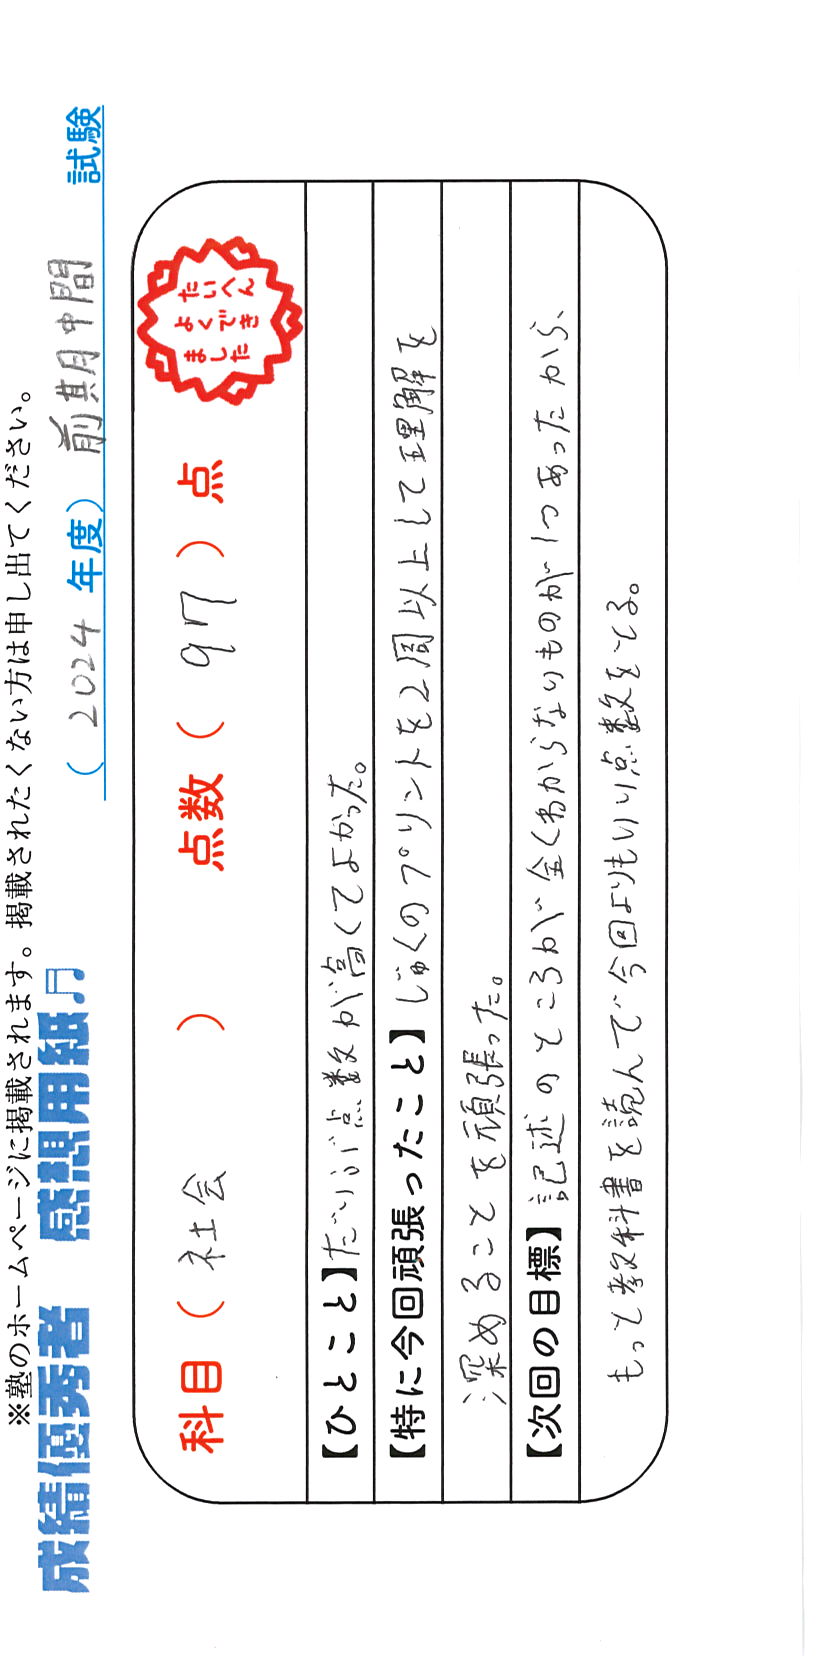 ※塾のホームページに掲載されます。掲載されたくない方は申し出てください。
成績優秀者 感想用紙♫
(2024年度)前期中間 試験
科目(社会) 点数(97)点
たいへん
よくでき
ました
【ひとこと】だいぶ点数が高くてよかった。
【特に今回頑張ったこと】じゅくのプリントを2周以上して理解を
深めることを頑張った。
【次回の目標】記述のところが全くわからないものが1つあったから、
もっと教科書を読んで今回よりもいい点数をとる。